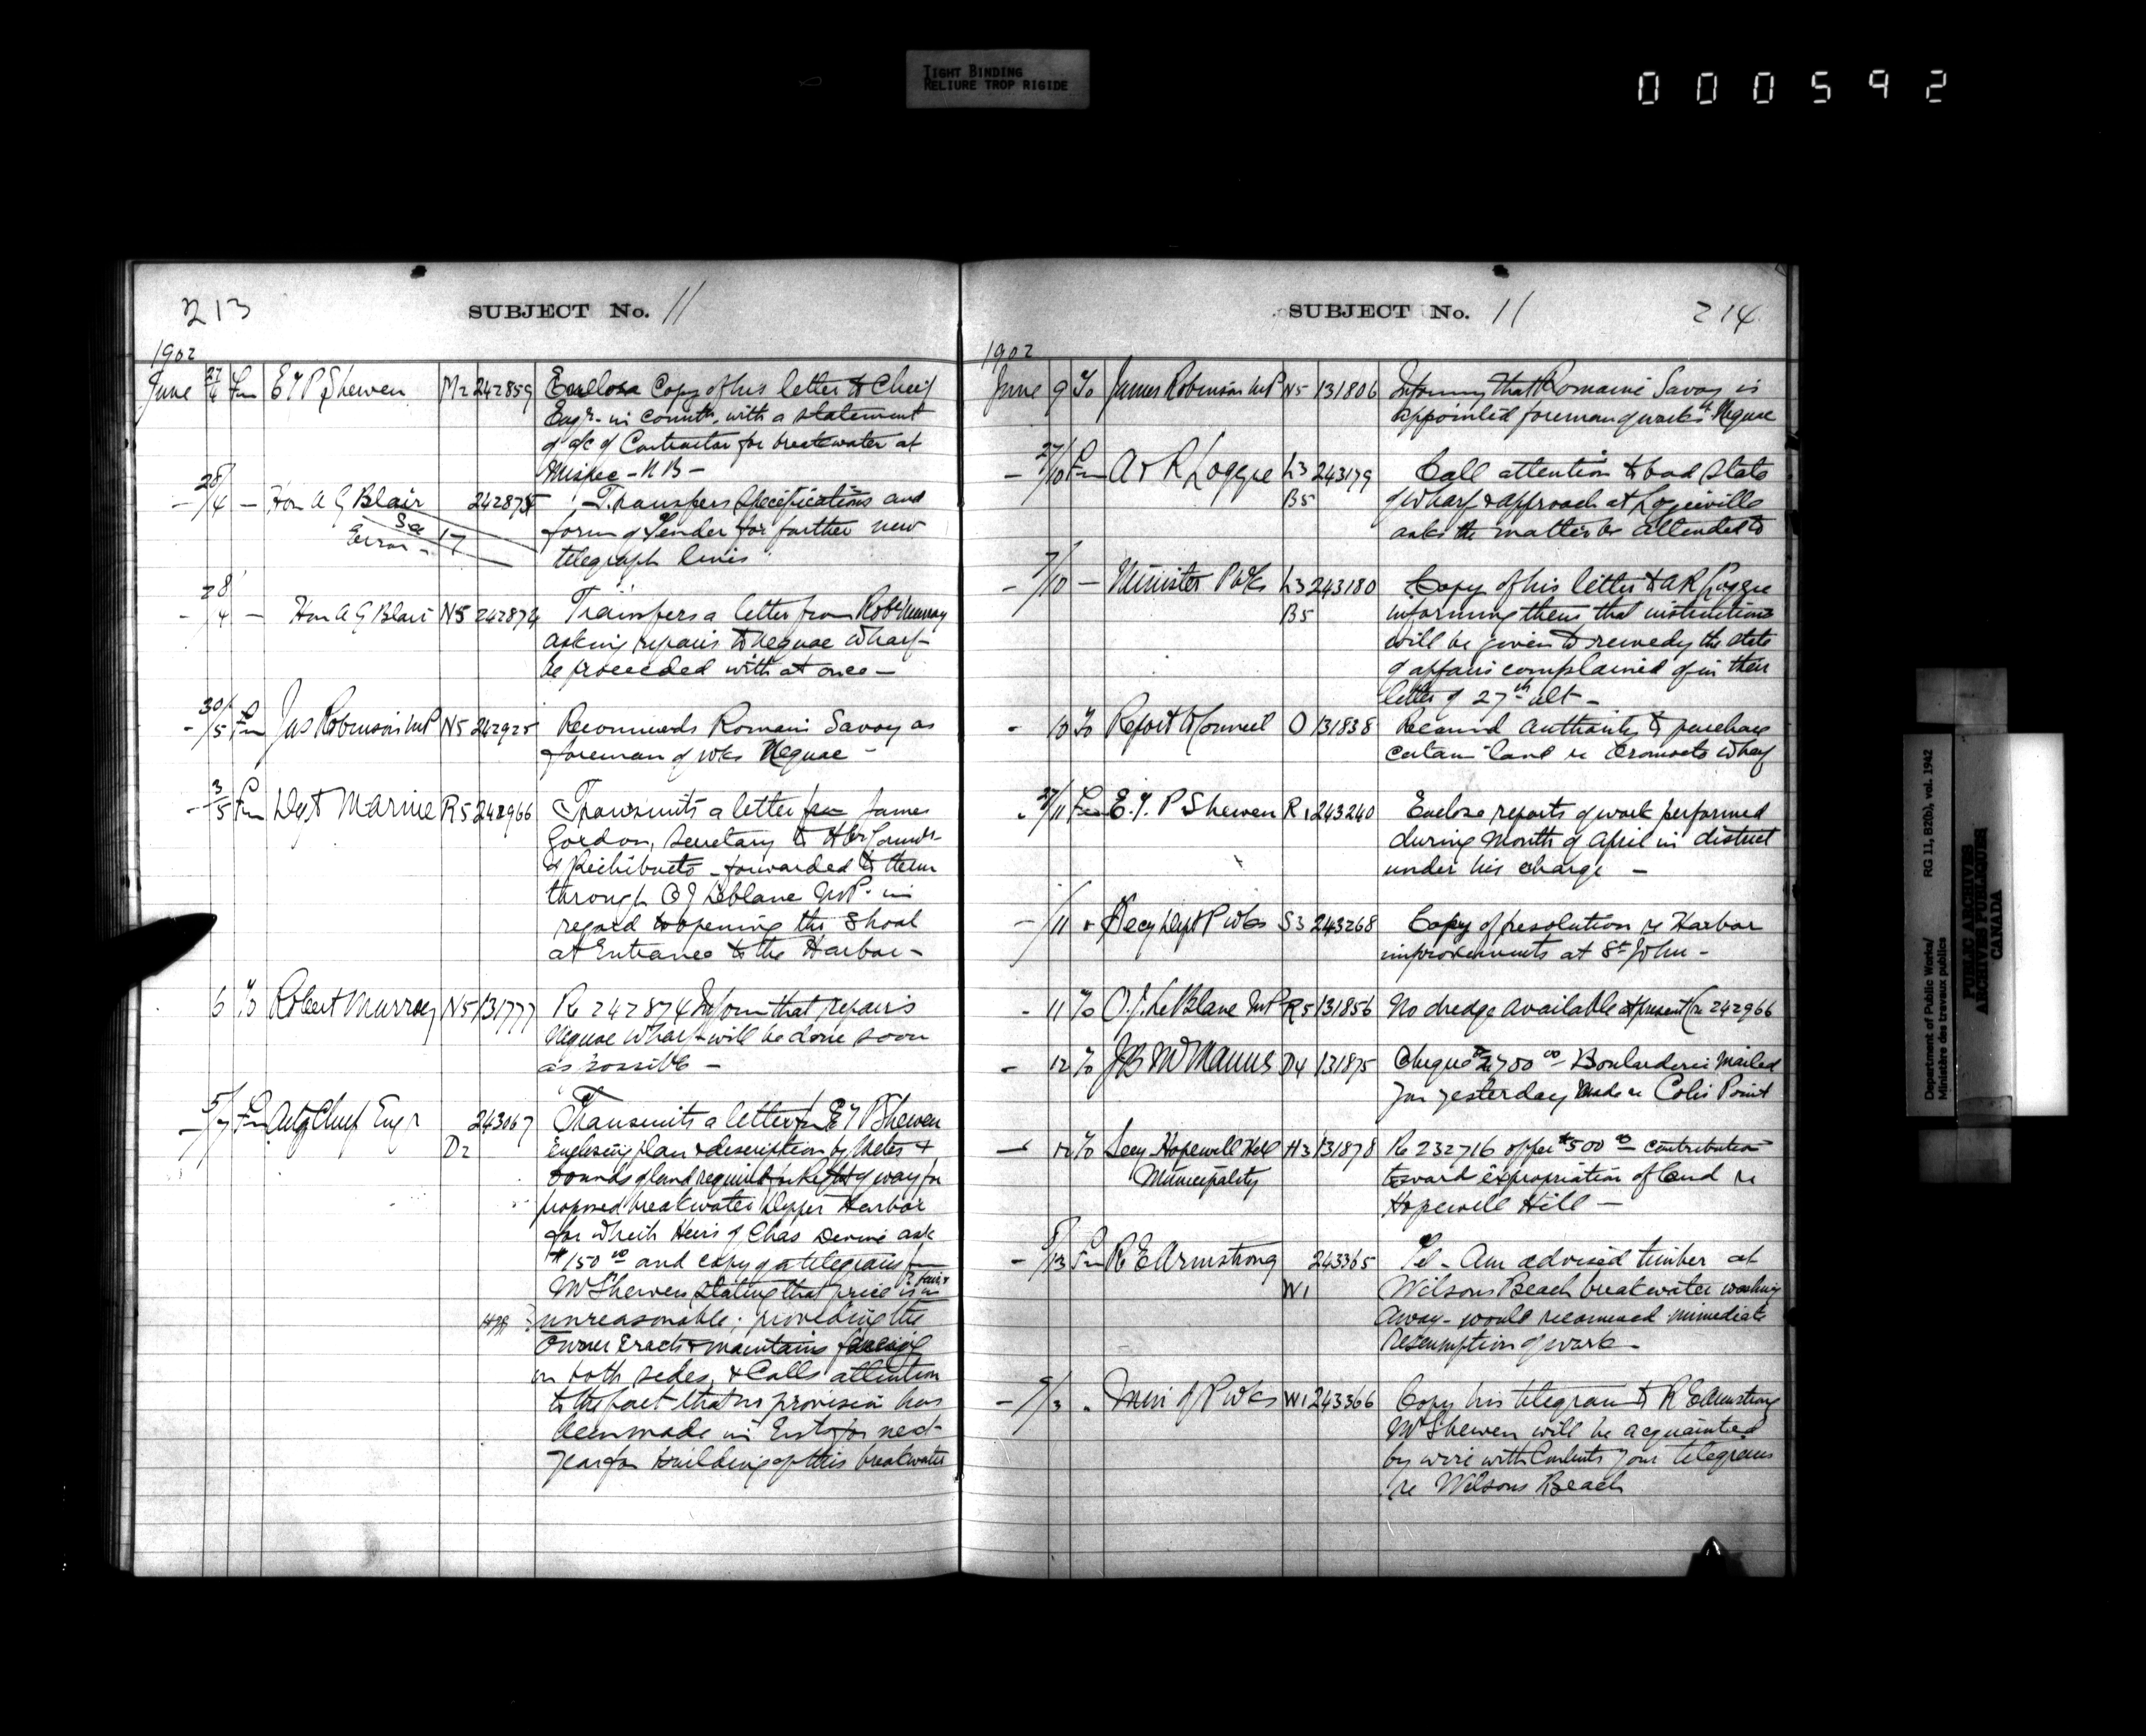 TIGHT BINDING
RELIURE TROP RIGIDE
000592
213
SUBJECT No. 11
1902
June 27/4 Fm E T P Shewen M2 242859 Enclose Copy of his letter to Chief
Engr. in connth. with a statement
of a/c of Contractor for breakwater at
Mispec - N B -
- 28/4 - Hon A G Blair 242875 Transfers Specifications and
See 17
Error -
form of Tender for further new
telegraph lines
- 28/4 - Hon A G Blair N5 242874 Transfers a letter from Robt Murray
asking repairs to Neguac Wharf
be proceeded with at once -
- 30/5 Fm Jas Robinson MP N5 242925 Recommends Romain Savoy as
foreman of wks Neguac -
- 3/5 Fm Dept Marine R5 242966 Transmits a letter fm James
Gordon, Secretary to Hbr Comrs
of Richibucto - forwarded to them
through O J Leblanc MP. in
regard to opening the Shoal
at Entrance to the Harbor -
6 To Robert Murray N5 131777 Re 242874 Inform that repairs
Neguac Wharf will be done soon
as possible -
- 5/7 Fm Actg Chief Engr 243067 Transmits a letter fm E T P Shewen
D2 Enclosing plan & description by Metes &
bounds of land required for Right of way for
proposed breakwater Dipper Harbor
for which Heirs of Chas Devine ask
$150 00 and copy of a telegram fm
Mr Shewen stating that price is
unreasonable; providing the
Owner Erects & maintains fencing
on both sides, & Calls attention
to the fact that no provision has
been made in Ests for next
year for building of this breakwater
SUBJECT No. 11
214
1902
June 9 To James Robinson MP N5 131806 Informg that Romaine Savoy is
appointed foreman of works at Neguac
- 27/10 Fm A & R Loggie L3 243179 Call attention to bad state
B5 of Wharf & approach at Loggieville
asks the matter be attended to
- 7/10 - Minister P Wks L3 243180 Copy of his letter to A R Loggie
B5 informing them that instructions
will be given to remedy the state
of affairs complained of in their
letter of 27th ult -
- 10 To Report to Council O 131838 Recomd Authority to purchase
certain land re Cromocto Wharf
- 27/11 Fm E. T. P Shewen R1 243240 Enclose reports of work performed
during Month of April in district
under his charge -
- /11 " Secy Dept P Wks S3 243268 Copy of resolution re Harbor
improvements at St John -
- 11 To O. J. LeBlanc MP R5 131856 No dredge available at present (re 242966
- 12 To J B McManus D4 131875 Cheque $2700 00 - Boularderie Mailed
you yesterday Made re Coles Point
- 12 To Secy Hopewell Hill H3 131878 Re 232716 offer $500 00 - contribution
Municipality toward expropriation of land re
Hopewell Hill -
- 8/13 Fm R E Armstrong 243365 Tel - Am advised timber at
W1 Wilsons Beach breakwater washing
Away - would recommend immediate
resumption of work -
- 9/13 " Min of P Wks W1 243366 Copy his telegram to R E Armstrong
Mr Shewen will be acquainted
by wire with Contents your telegram
re Wilsons Beach
Department of Public Works/
Ministère des travaux publics
RG 11, B2(b), vol. 1942
PUBLIC ARCHIVES
ARCHIVES PUBLIQUES
CANADA